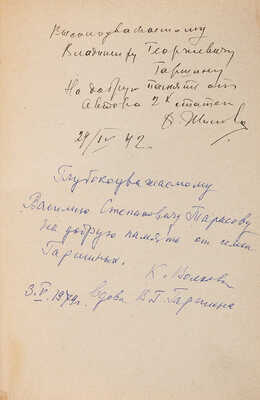 Высокоуважаемому
Владимиру Георгиевичу
Гаршину
На добрую память от
Автора 2х статей
29/IV 42.
Глубокоуважаемому
Василию Степановичу Тарасову
на добрую память от семьи
Гаршиных.
К. Волкова
3.V.1979г. Вдова В.Г. Гаршина